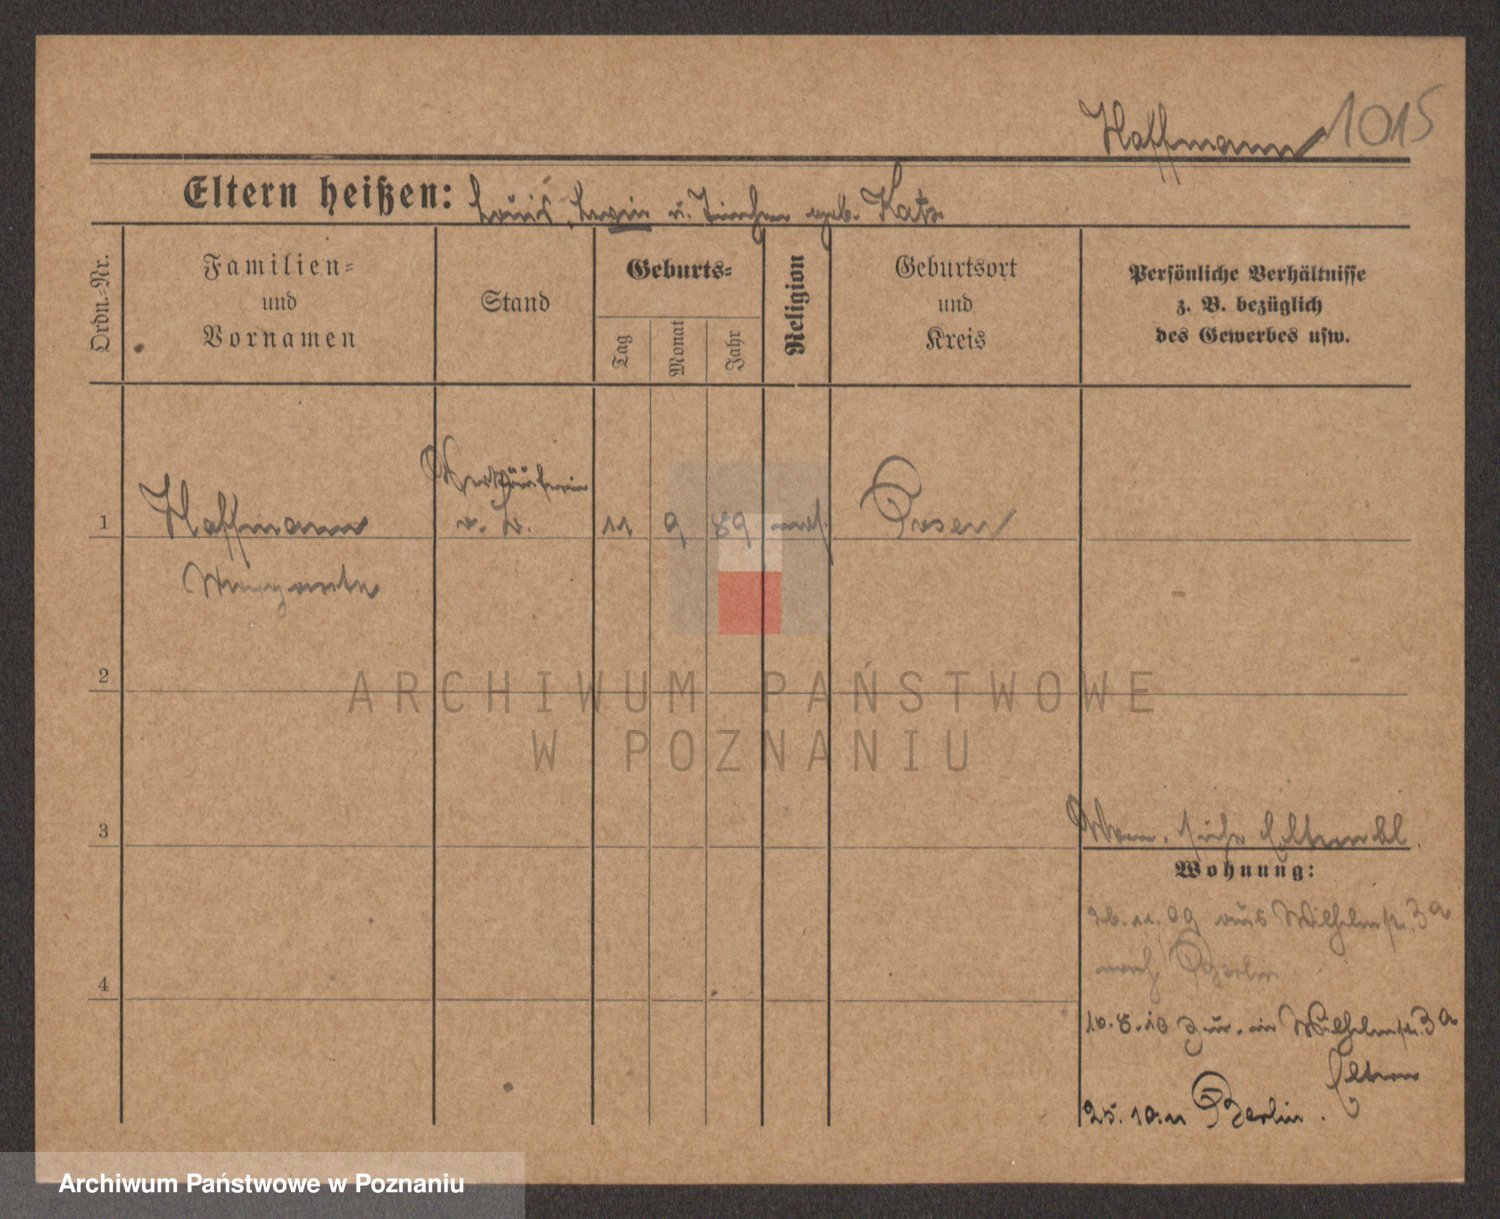 Haffmann 1015
Eltern heißen: Louis, Lewin u. geb. Katz
Ordn.-Nr.
Familien-
und
Vornamen
Stand
Geburts-
Tag
Monat
Jahr
Religion
Geburtsort
und
Kreis
Persönliche Verhältnisse
z. B. bezüglich
des Gewerbes usw.
1
Haffmann
Verkäuferin
v. L.
11 9 89 mos.
Posen
Margarete
2
ARCHIWUM PAŃSTWOWE
W POZNANIU
3
siehe Elternbl.
Wohnung:
26.11.09 aus Wilhelmstr. 3a
nach Berlin
4
10.8.10 zur. in Wilhelmstr. 3a
Eltern
25.10.11 Berlin.
Archiwum Państwowe w Poznaniu